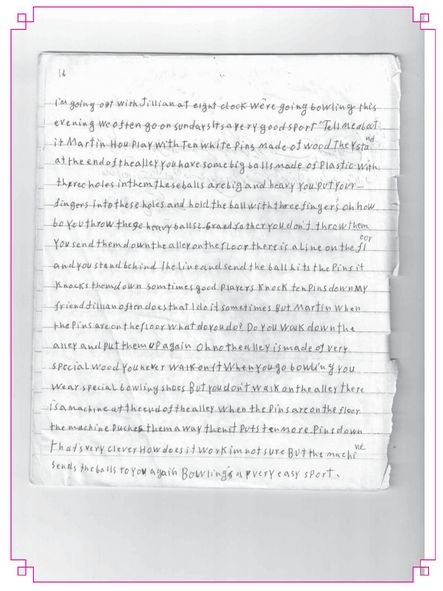 16
I'm going out with Jillian at eight clock we're going bowling this
evening we often go on sundays Its a very good sport "Tell me about
it Martin How Play with Ten white Pins made of wood They stand
at the end of the alley you have some big balls made of Plastic with
three holes in them these balls are big and heavy you put your
fingers into these holes and hold the ball with three fingers oh how
Do you throw these heavy balls. Grandfather you don't throw them
You send them down the alley on the floor there is a Line on the floor
and you stand behind The Line and send the ball hits the Pins it
Knocks them down somtimes good Players Knock ten Pins down My
friend Jillian often does that I do it sometimes But Martin when
the Pins are on the floor what do you do? Do you walk down the
alley and put them up again Oh no the alley is made of very
special wood You never walk on it When you go bowling you
wear special bowling shoes But you don't walk on the alley there
is a machine at the end of the alley When the Pins are on the floor
the machine Puches them away then it Puts ten more Pins down
That's very clever How does it work im not sure But the machine
sends the balls to you again Bowling's a very easy sport.